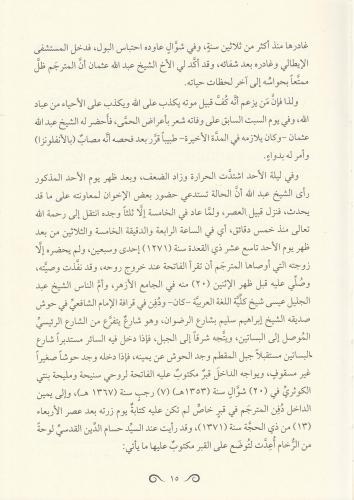 غادرها منذ أكثر من ثلاثين سنة، وفي شوَّال عاوده احتباس البول، فدخل المستشفى
الإيطالي وغادره بعد شفائه، وقد أكَّد لي الأخ الشيخ عبد الله عثمان أنَّ المترجَم ظلَّ
ممتَّعاً بحواسِّه إلى آخر لحظات حياته.
ولذا فإنَّ مَن يزعم أنَّه كُفَّ قبيل موته يكذب على الله ويكذب على الأحياء من عباد
الله، وفي يوم السبت السابق على وفاته شعر بأعراض الحمَّى، فأحضر له الشيخ عبد الله
عثمان -وكان يلازمه في المدَّة الأخيرة- طبيباً قرَّر بعد فحصه أنَّه مصابٌ (بالأنفلونزا)
وأمر له بدواءٍ.
وفي ليلة الأحد اشتدَّت الحرارة وزاد الضعف، وبعد ظهر يوم الأحد المذكور
رأى الشيخ عبد الله أنَّ الحالة تستدعي حضور بعض الإخوان لمعاونته على ما قد
يحدث، فنزل قبيل العصر، ولمَّا عاد في الخامسة إلَّا ثلثاً وجده انتقل إلى رحمة الله
تعالى منذ خمس دقائق، أي في الساعة الرابعة والدقيقة الخامسة والثلاثين من بعد
ظهر يوم الأحد تاسع عشر ذي القعدة سنة (١٣٧١) إحدى وسبعين، ولم يحضره إلَّا
زوجته التي أوصاها المترجَم أن تقرأ الفاتحة عند خروج روحه، وقد نفَّذت وصيَّته،
وصُلِّي عليه قبل ظهر الإثنين (٢٠) منه في الجامع الأزهر، وأمَّ الناس الشيخ عبد
الجليل عيسى شيخ كلِّيَّة اللغة العربيَّة -كان- ودُفِن في قرافة الإمام الشافعيِّ في حوش
صديقه الشيخ إبراهيم سليم بشارع الرضوان، وهو شارعٌ يتفرَّع من الشارع الرئيسيِّ
المُوصل إلى البساتين، ويتَّجه شرقاً إلى الجبل، فإذا دخل فيه السائر مستدبراً شارع
البساتين مستقبلاً جبل المقطم وجد الحوش عن يمينه، فإذا دخله وجد حوشاً صغيراً
غير مسقوفٍ، ويواجه الداخل قبرٌ مكتوبٌ عليه الفاتحة لروحي سنيحة ومليحة بنتي
الكوثريِّ في (٢٠) شوَّال سنة (١٣٥٣هـ) (٧) رجبٍ سنة (١٣٦٧ هـ)، وإلى يمين
الداخل دُفِن المترجَم في قبرٍ خاصٍّ لم تكن عليه كتابةٌ يوم زرته بعد عصر الأربعاء
(١٣) من ذي الحجَّة سنة (١٣٧١)، وقد رأيت عند السيِّد حسام الدِّين القدسيِّ لوحةً
من الرُّخام أُعِدَّت لتُوضَع على القبر مكتوبٌ عليها ما يأتي:
١٥